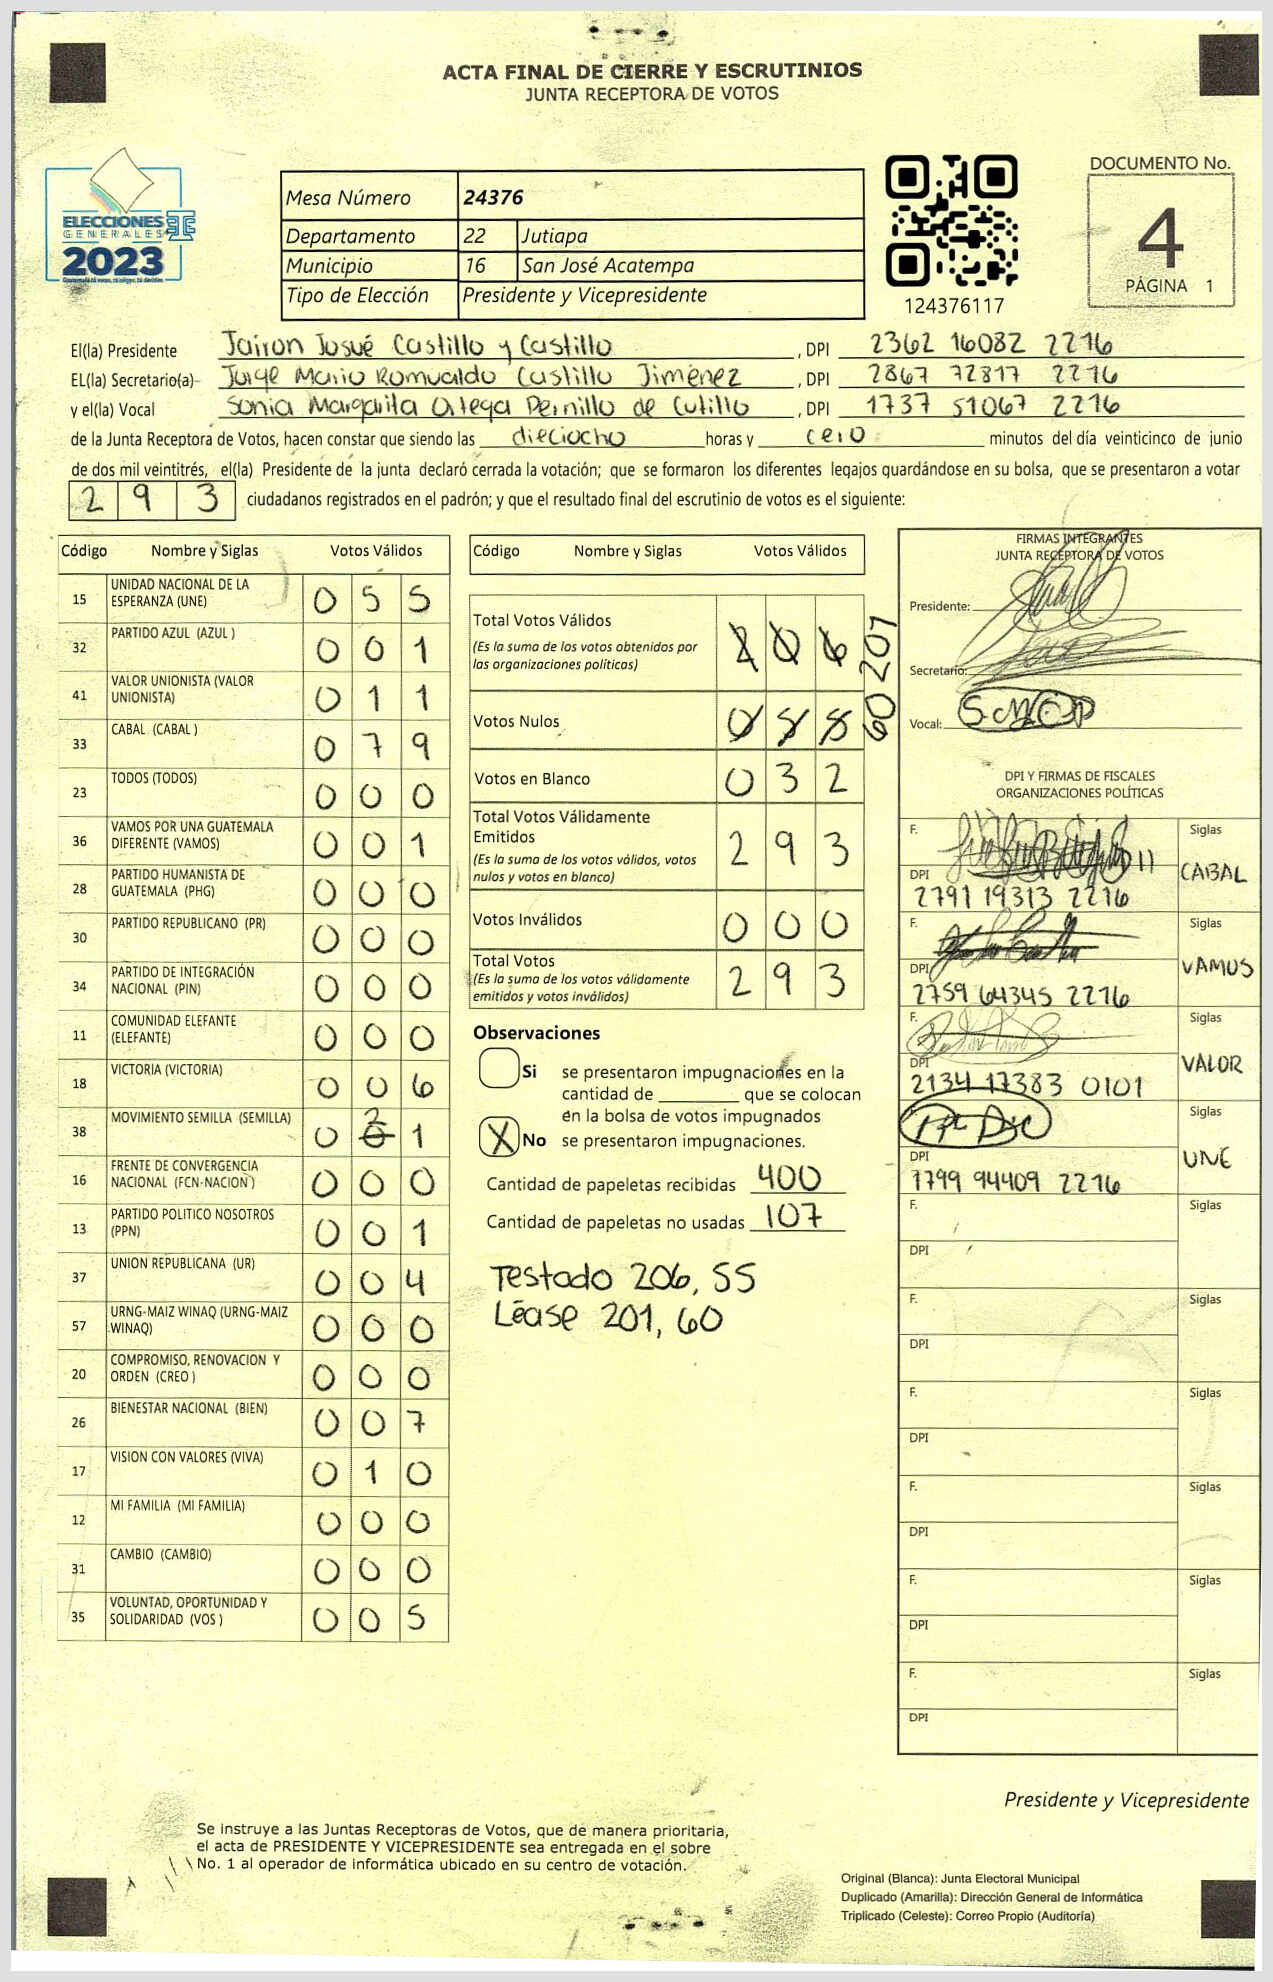 ACTA FINAL DE CIERRE Y ESCRUTINIOS
JUNTA RECEPTORA DE VOTOS
ELECCIONES
GENERALES
2023
Mesa Número 24376
Departamento 22 Jutiapa
Municipio 16 San José Acatempa
Tipo de Elección Presidente y Vicepresidente
124376117
DOCUMENTO No.
4
PÁGINA 1
El(la) Presidente Jairon Josué Castillo y Castillo, DPI 2362 16082 2216
EL(la) Secretario(a) Jorge Mario Romualdo Castillo Jiménez, DPI 2867 72817 2216
y el(la) Vocal Sonia Margarita Ortega Pernillo de, DPI 1737 51067 2216
de la Junta Receptora de Votos, hacen constar que siendo las dieciocho horas y cero minutos del día veinticinco de junio
de dos mil veintitrés, el(la) Presidente de la junta declaró cerrada la votación; que se formaron los diferentes legajos guardándose en su bolsa, que se presentaron a votar
293 ciudadanos registrados en el padrón; y que el resultado final del escrutinio de votos es el siguiente:
Código Nombre y Siglas Votos Válidos
15 UNIDAD NACIONAL DE LA ESPERANZA (UNE) 0 5 5
32 PARTIDO AZUL (AZUL ) 0 0 1
41 VALOR UNIONISTA (VALOR UNIONISTA) 0 1 1
33 CABAL (CABAL ) 0 7 9
23 TODOS (TODOS) 0 0 0
36 VAMOS POR UNA GUATEMALA DIFERENTE (VAMOS) 0 0 1
28 PARTIDO HUMANISTA DE GUATEMALA (PHG) 0 0 0
30 PARTIDO REPUBLICANO (PR) 0 0 0
34 PARTIDO DE INTEGRACIÓN NACIONAL (PIN) 0 0 0
11 COMUNIDAD ELEFANTE (ELEFANTE) 0 0 0
18 VICTORIA (VICTORIA) 0 0 6
38 MOVIMIENTO SEMILLA (SEMILLA) 0 2 1
16 FRENTE DE CONVERGENCIA NACIONAL (FCN-NACION ) 0 0 0
13 PARTIDO POLITICO NOSOTROS (PPN) 0 0 1
37 UNION REPUBLICANA (UR) 0 0 4
57 URNG-MAIZ WINAQ (URNG-MAIZ WINAQ) 0 0 0
20 COMPROMISO, RENOVACION Y ORDEN (CREO ) 0 0 0
26 BIENESTAR NACIONAL (BIEN) 0 0 7
17 VISION CON VALORES (VIVA) 0 1 0
12 MI FAMILIA (MI FAMILIA) 0 0 0
31 CAMBIO (CAMBIO) 0 0 0
35 VOLUNTAD, OPORTUNIDAD Y SOLIDARIDAD (VOS ) 0 0 5
Código Nombre y Siglas Votos Válidos
Total Votos Válidos 2 0 6 201
(Es la suma de los votos obtenidos por
las organizaciones políticas)
Votos Nulos 0 5 5 60
Votos en Blanco 0 3 2
Total Votos Válidamente
Emitidos 2 9 3
(Es la suma de los votos válidos, votos
nulos y votos en blanco)
Votos Inválidos 0 0 0
Total Votos 2 9 3
(Es la suma de los votos válidamente
emitidos y votos inválidos)
Observaciones
Si se presentaron impugnaciones en la
cantidad de ________ que se colocan
en la bolsa de votos impugnados
X No se presentaron impugnaciones.
Cantidad de papeletas recibidas 400
Cantidad de papeletas no usadas 107
Testado 206, 55
Léase 201, 60
FIRMAS INTEGRANTES
JUNTA RECEPTORA DE VOTOS
Presidente:
Secretario:
Vocal:
DPI Y FIRMAS DE FISCALES
ORGANIZACIONES POLÍTICAS
F. Siglas
DPI 2791 19313 2216 CABAL
F. Siglas
DPI 2759 64345 2216 VAMOS
F. Siglas
DPI 2134 17383 0101 VALOR
F. Siglas
DPI 1799 94409 2216 UNE
F. Siglas
DPI
F. Siglas
DPI
F. Siglas
DPI
F. Siglas
DPI
F. Siglas
DPI
F. Siglas
DPI
Presidente y Vicepresidente
Se instruye a las Juntas Receptoras de Votos, que de manera prioritaria,
el acta de PRESIDENTE Y VICEPRESIDENTE sea entregada en el sobre
No. 1 al operador de informática ubicado en su centro de votación.
Original (Blanca): Junta Electoral Municipal
Duplicado (Amarilla): Dirección General de Informática
Triplicado (Celeste): Correo Propio (Auditoría)